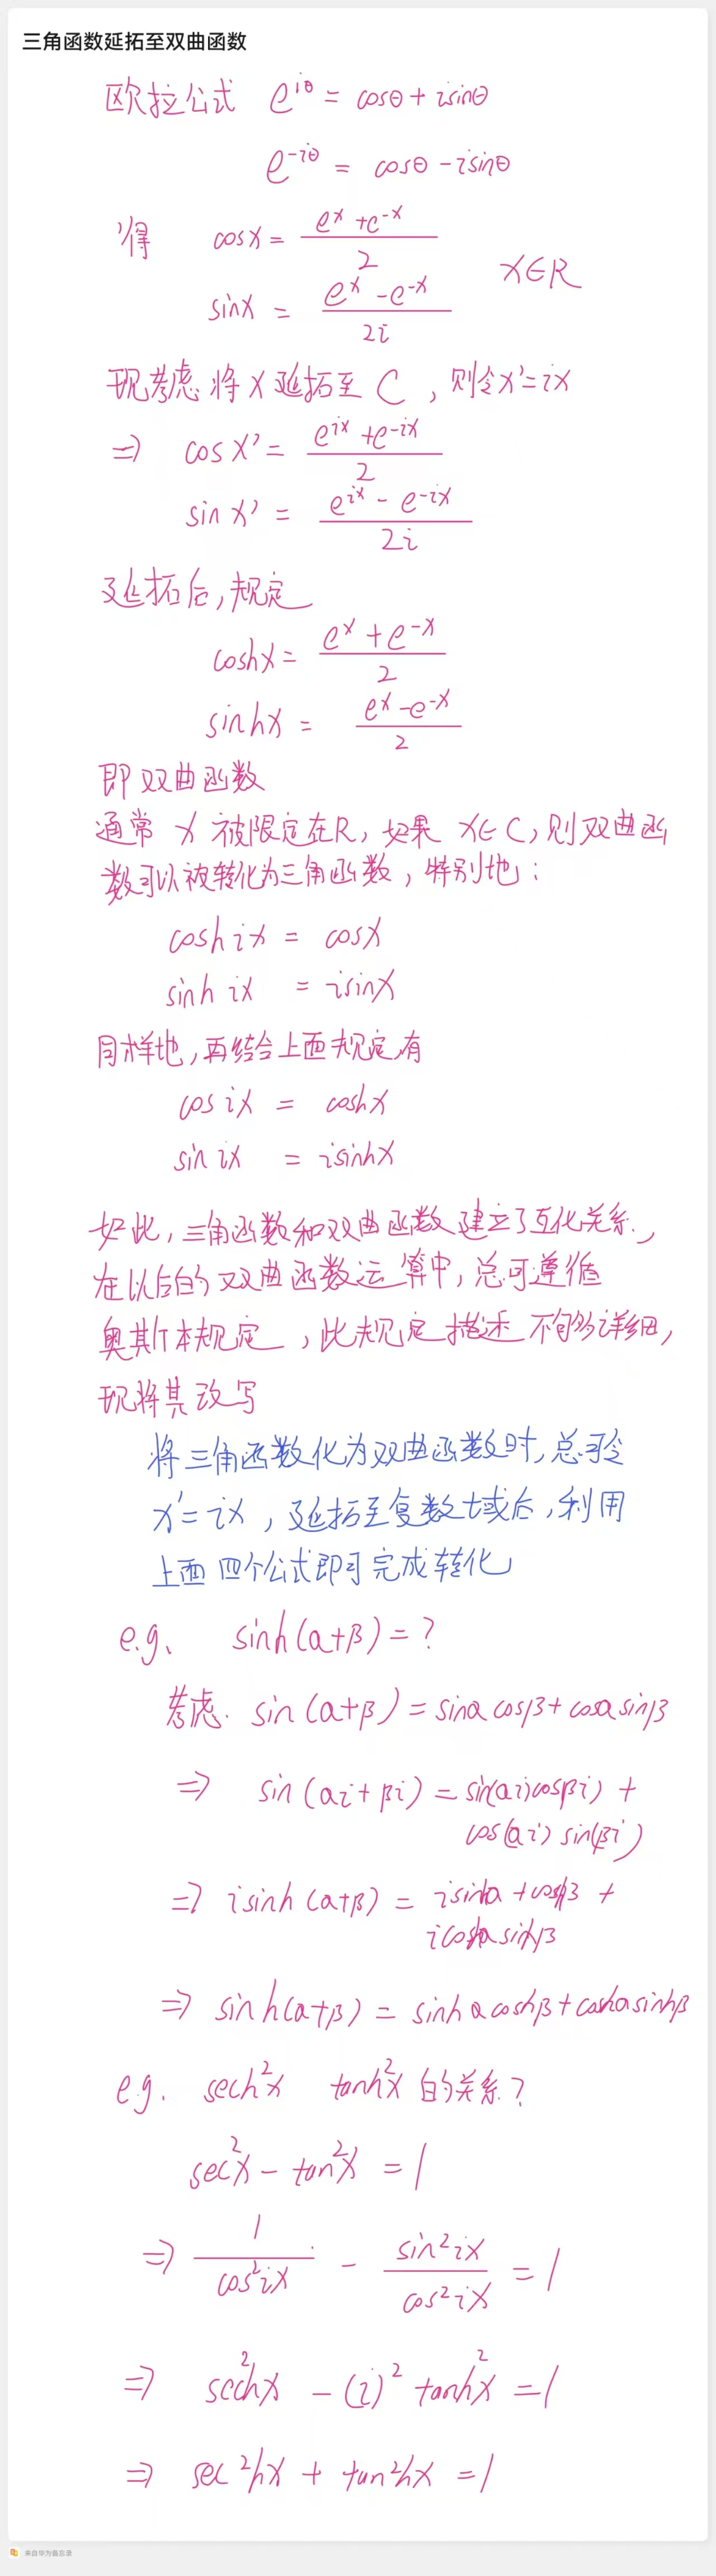 三角函数延拓至双曲函数
欧拉公式 e^{iθ} = cosθ + isinθ
e^{-iθ} = cosθ - isinθ
得 cosx = (e^x + e^{-x})/2
sinx = (e^x - e^{-x})/2i x∈R
现考虑将x延拓至C,则令x'=ix
⇒ cosx' = (e^{ix} + e^{-ix})/2
sinx' = (e^{ix} - e^{-ix})/2i
延拓后,规定
coshx = (e^x + e^{-x})/2
sinhx = (e^x - e^{-x})/2
即双曲函数
通常 x 被限定在R,如果 x∈C,则双曲函
数可以被转化为三角函数,特别地:
cosh ix = cosx
sinh ix = isinx
同样地,再结合上面规定,有
cos ix = coshx
sin ix = isinhx
如此,三角函数和双曲函数建立了互化关系,
在以后的双曲函数运算中,总可遵循
奥斯本规定,此规定描述不够详细,
现将其改写
将三角函数化为双曲函数时,总可令
x'=ix,延拓至复数域后,利用
上面四个公式即可完成转化
e.g. sinh(α+β)=?
考虑. sin(α+β)=sinαcosβ+cosαsinβ
⇒ sin(αi+βi)=sin(αi)cosβi)+
cos(αi) sin(βi)
⇒ isinh(α+β) = isinhα+coshβ +
icoshαsinhβ
⇒ sinh(α+β) = sinhαcoshβ+coshαsinhβ
e.g. sech²x tanh²x 的关系?
sec²x - tan²x = 1
⇒ 1/cos²ix - sin²ix/cos²ix = 1
⇒ sech²x - (i)² tanh²x = 1
⇒ sec²hx + tan²hx = 1
来自华为备忘录